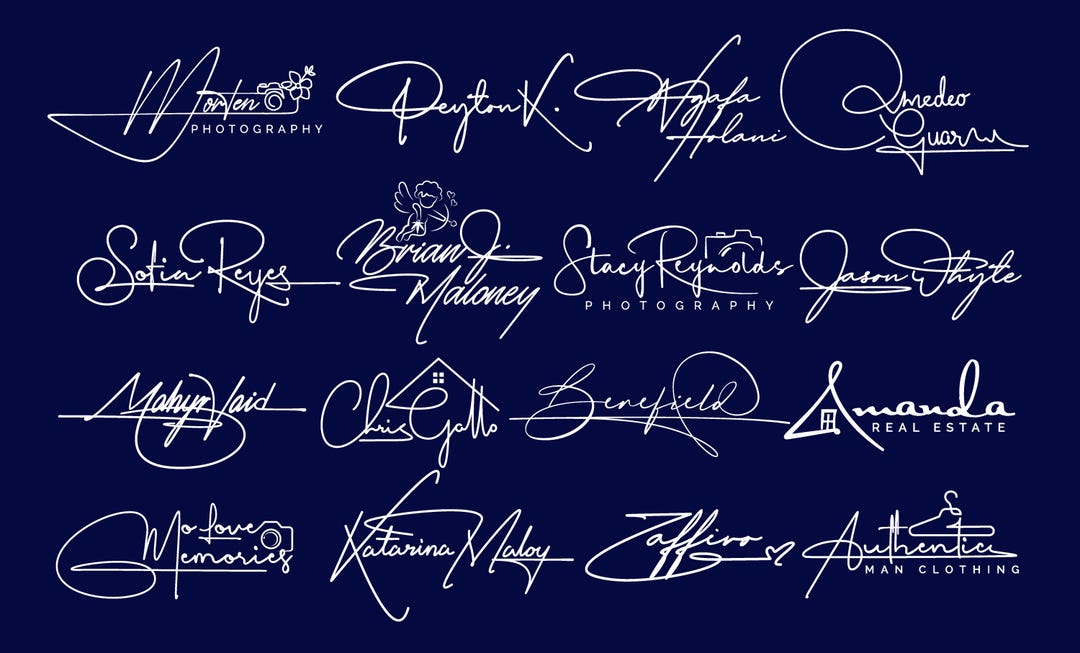 Morten
PHOTOGRAPHY
Peyton K.
Ngafa
Holani
Amedeo
Guarin
Sofia Reyes
Brian J.
Maloney
Stacy Reynolds
PHOTOGRAPHY
Jason Whyte
Chris Gallo
Benefield
Amanda
REAL ESTATE
Mo Love
Memories
Katarina Maloy
Zaffiro
Authentic
MAN CLOTHING